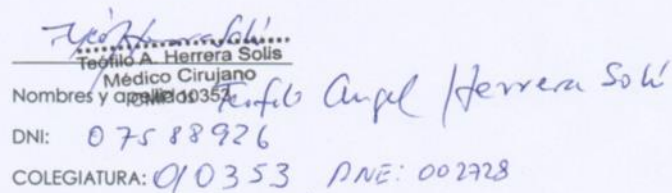 Teófilo A. Herrera Solis
Médico Cirujano
CMP 10353
Nombres y apellidos Teofilo Angel Herrera Solis
DNI: 07588926
COLEGIATURA: 010353 RNE: 002728